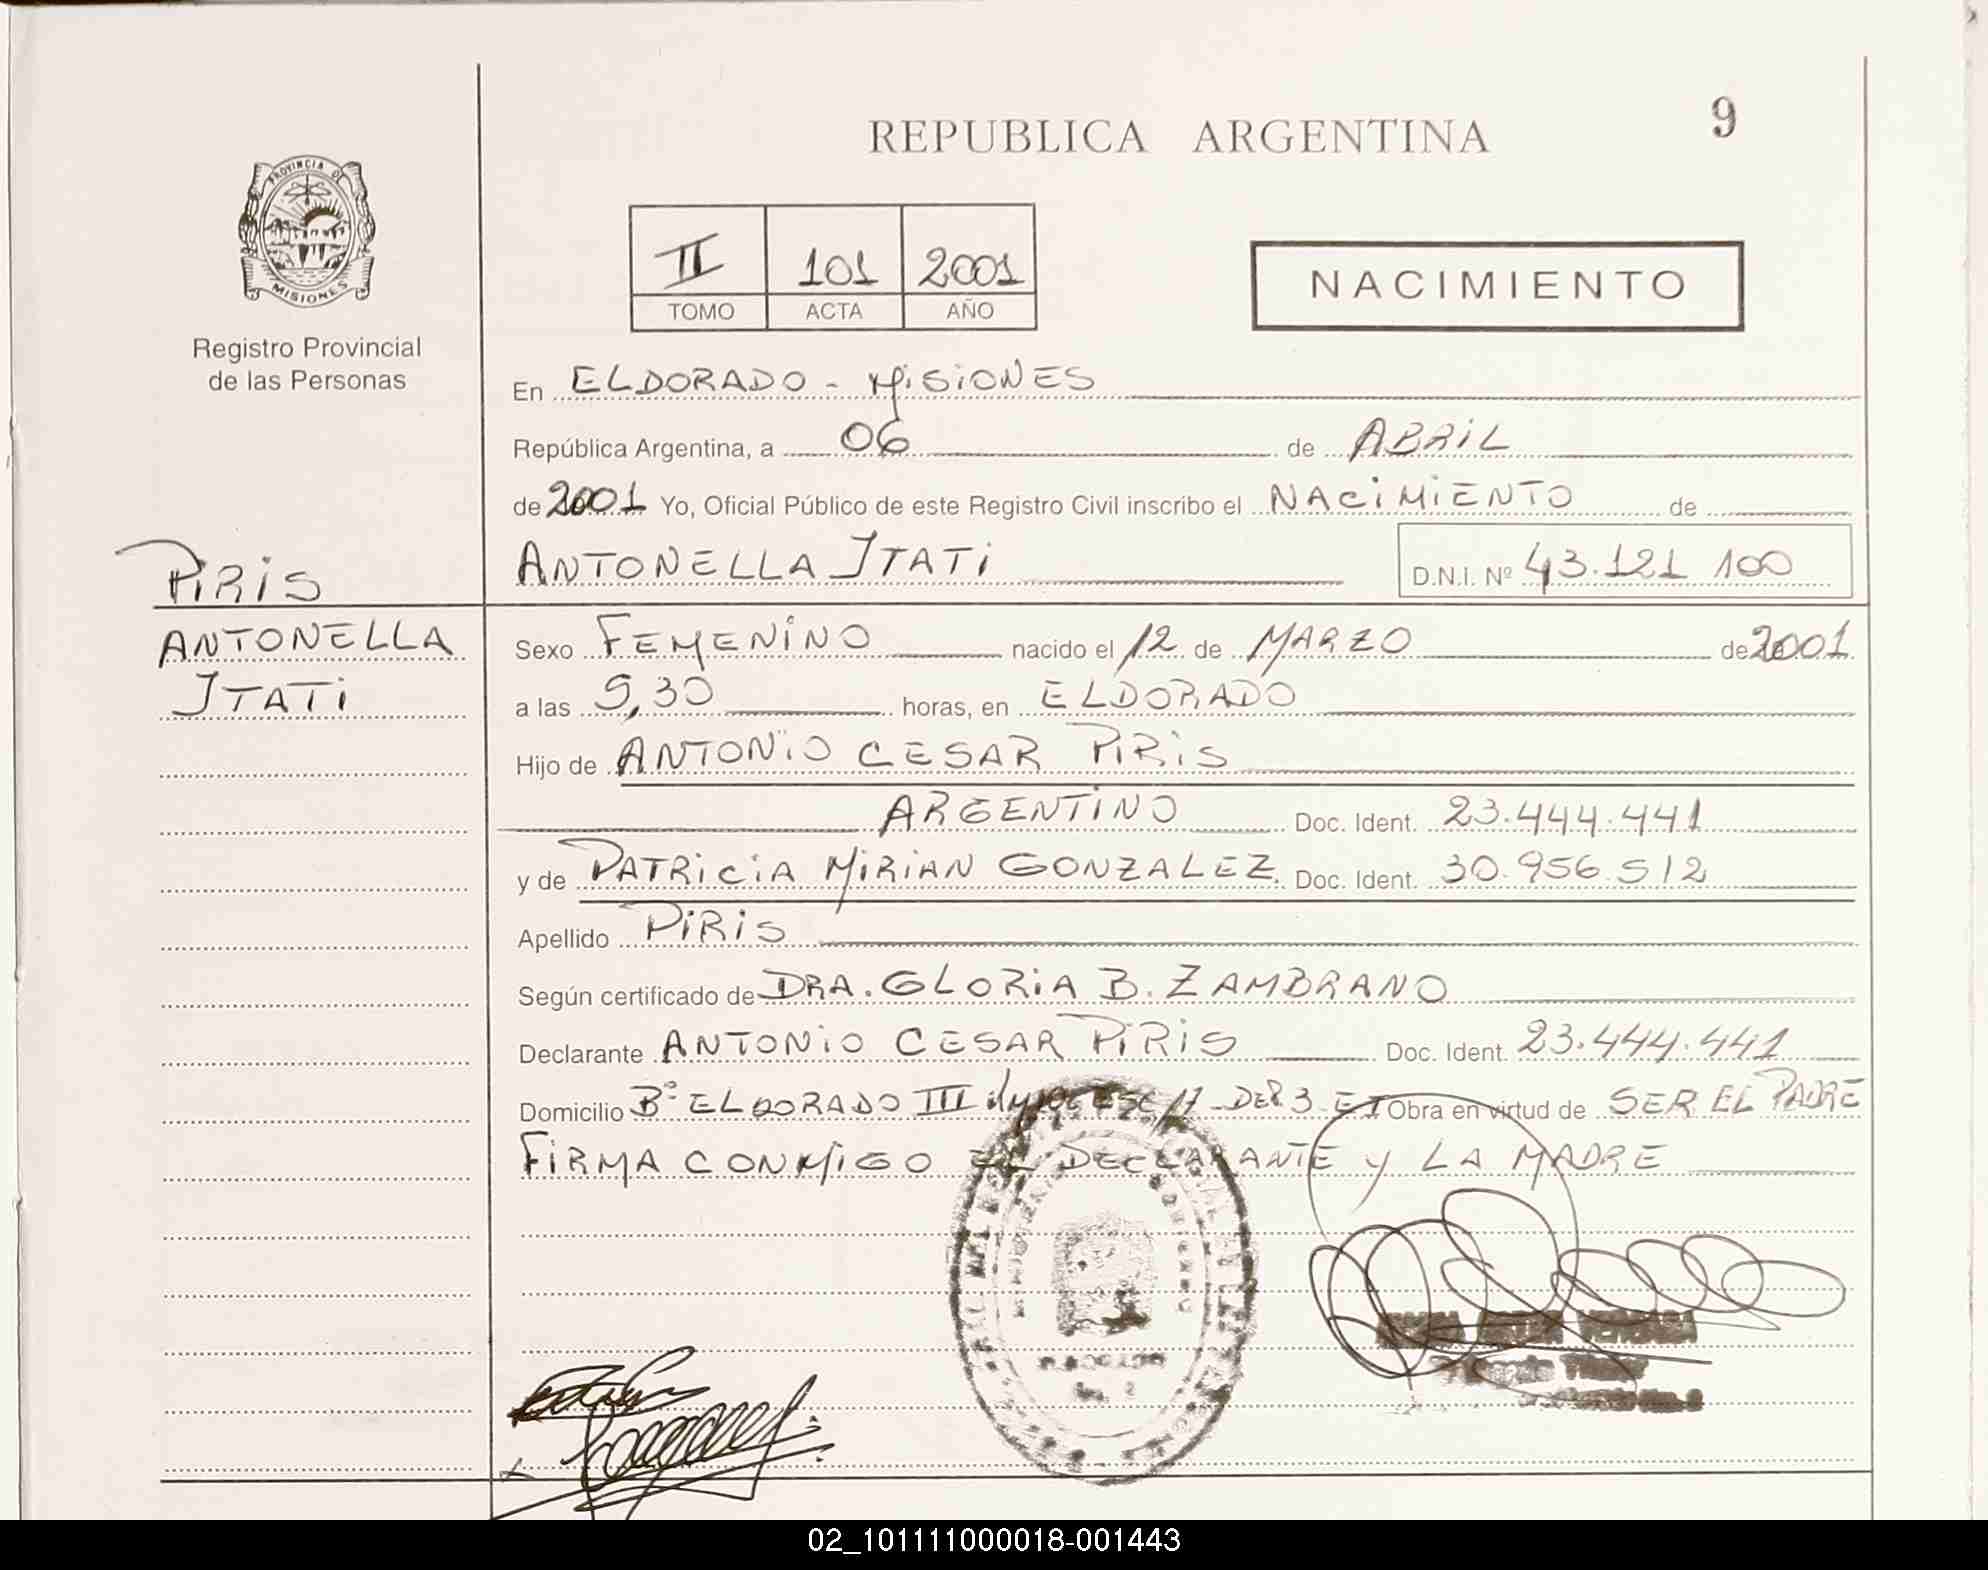 9
REPUBLICA ARGENTINA
PROVINCIA DE
MISIONES
Registro Provincial
de las Personas
II 101 2001
TOMO ACTA AÑO
NACIMIENTO
En ELDORADO - MISIONES
República Argentina, a 06 de ABRIL
de 2001 Yo, Oficial Público de este Registro Civil inscribo el NACIMIENTO de
ANTONELLA ITATI D.N.I. Nº 43.121 100
PIRIS
ANTONELLA
ITATI
Sexo FEMENINO nacido el 12 de MARZO de 2001
a las 9,30 horas, en ELDORADO
Hijo de ANTONIO CESAR PIRIS
ARGENTINO Doc. Ident. 23.444.441
y de PATRICIA MIRIAN GONZALEZ Doc. Ident. 30.956.512
Apellido PIRIS
Según certificado de DRA. GLORIA B. ZAMBRANO
Declarante ANTONIO CESAR PIRIS Doc. Ident. 23.444.441
Domicilio Bº ELDORADO III Obra en virtud de SER EL PADRE
FIRMA CONMIGO EL DECLARANTE Y LA MADRE
02_101111000018-001443